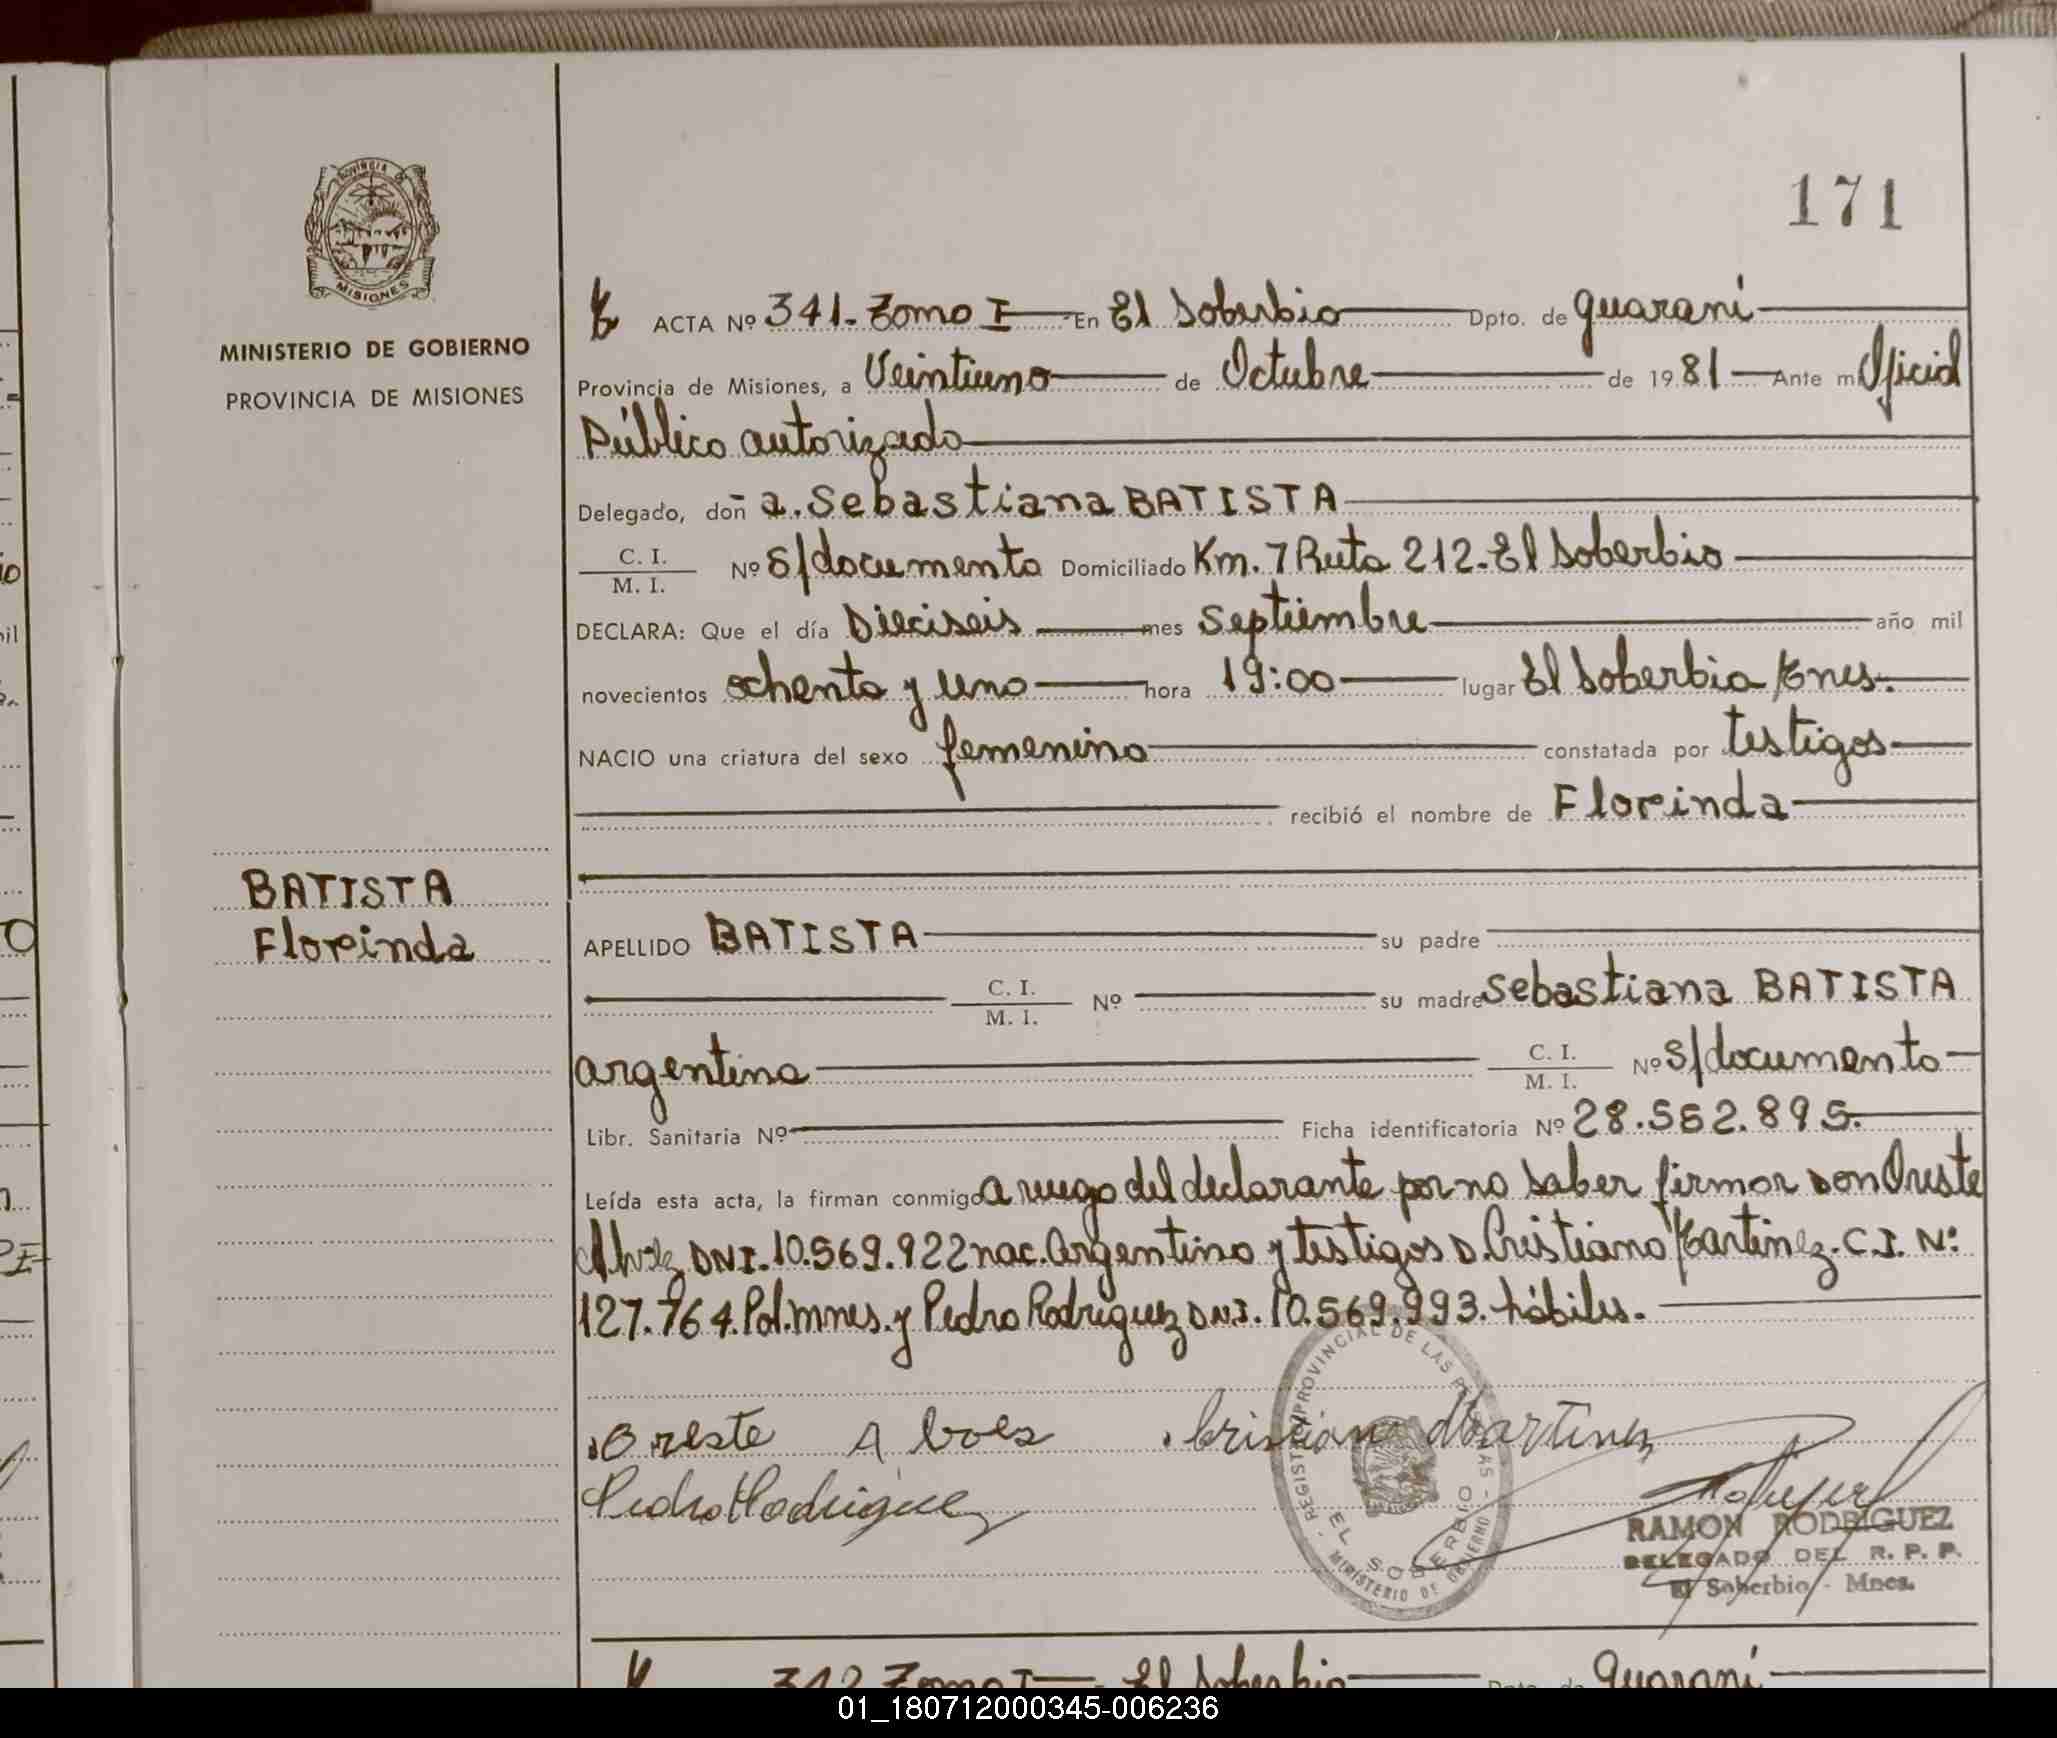 171
PROVINCIA DE
MISIONES
MINISTERIO DE GOBIERNO
PROVINCIA DE MISIONES
ACTA Nº 341. Tomo I En El Soberbio Dpto. de Guaraní
Provincia de Misiones, a Veintiuno de Octubre de 1981 Ante mí Oficial
Público autorizado
Delegado, doñ a. Sebastiana BATISTA
C. I.
M. I.
Nº S/documento Domiciliado Km. 7 Ruta 212. El Soberbio
DECLARA: Que el día Dieciseis mes Septiembre año mil
novecientos ochenta y uno hora 19:00 lugar El Soberbio Mnes.
NACIO una criatura del sexo femenino constatada por testigos
recibió el nombre de Florinda
BATISTA
Florinda
APELLIDO BATISTA su padre
C. I.
M. I.
Nº su madre Sebastiana BATISTA
argentina C. I.
M. I.
Nº S/documento
Libr. Sanitaria Nº Ficha identificatoria Nº 28.552.895.
Leída esta acta, la firman conmigo a ruego del declarante por no saber firmar Don Oreste
Alvez DNI. 10.569.922 nac. Argentino y testigos D. Cristiano Martinez. C.I. Nº
127.764. Pol. Mnes. y Pedro Rodriguez DNI. 10.569.993. hábiles.
Oreste Alves Cristiano Martinez
Pedro Rodriguez
REGISTRO PROVINCIAL DE LAS PERSONAS
EL SOBERBIO
MINISTERIO DE GOBIERNO
RAMON RODRIGUEZ
DELEGADO DEL R. P. P.
El Soberbio - Mnes.
342 Tomo I El Soberbio Dpto. de Guaraní
01_180712000345-006236